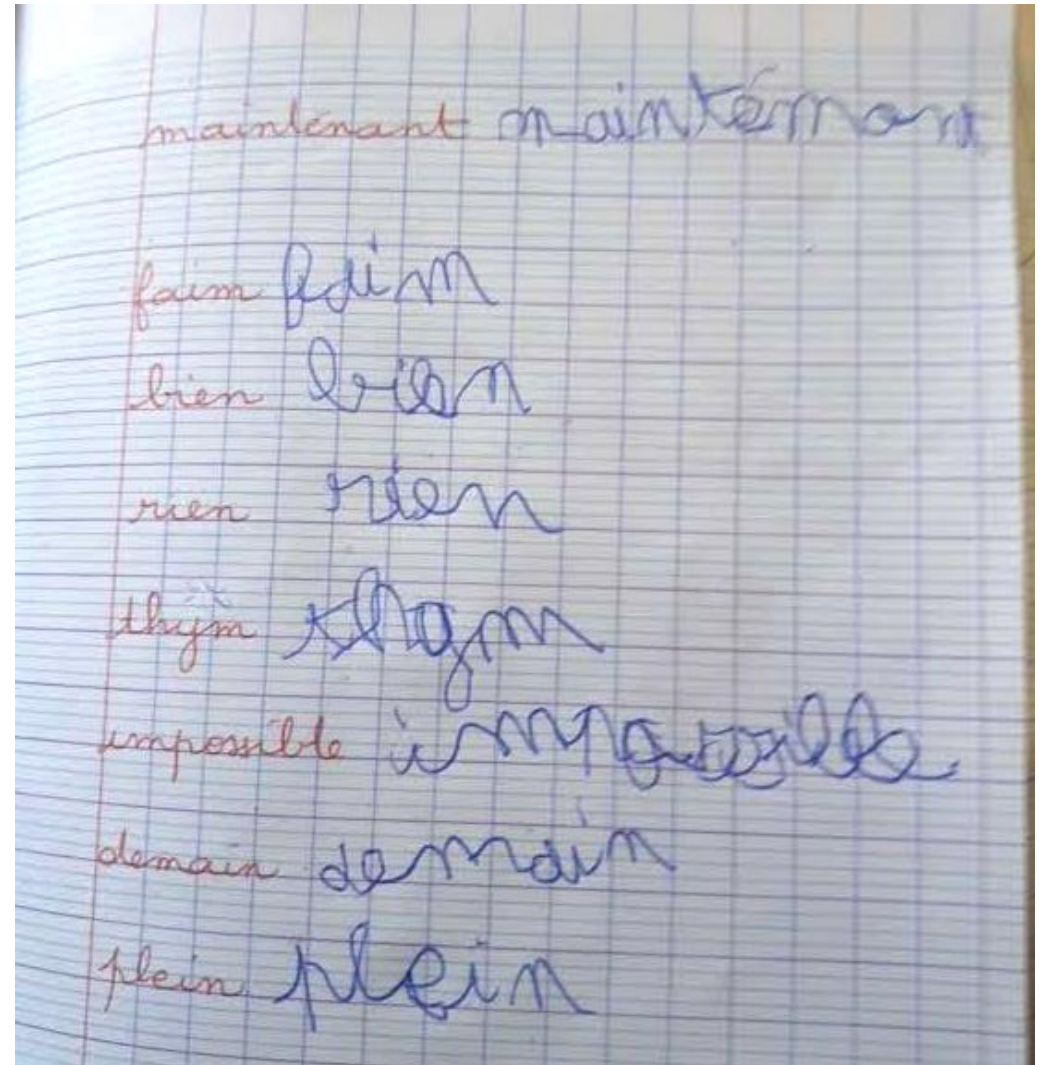 maintenant maintémant
faim faim
bien bien
rien rien
thym thym
impossible impossible
demain demain
plein plein